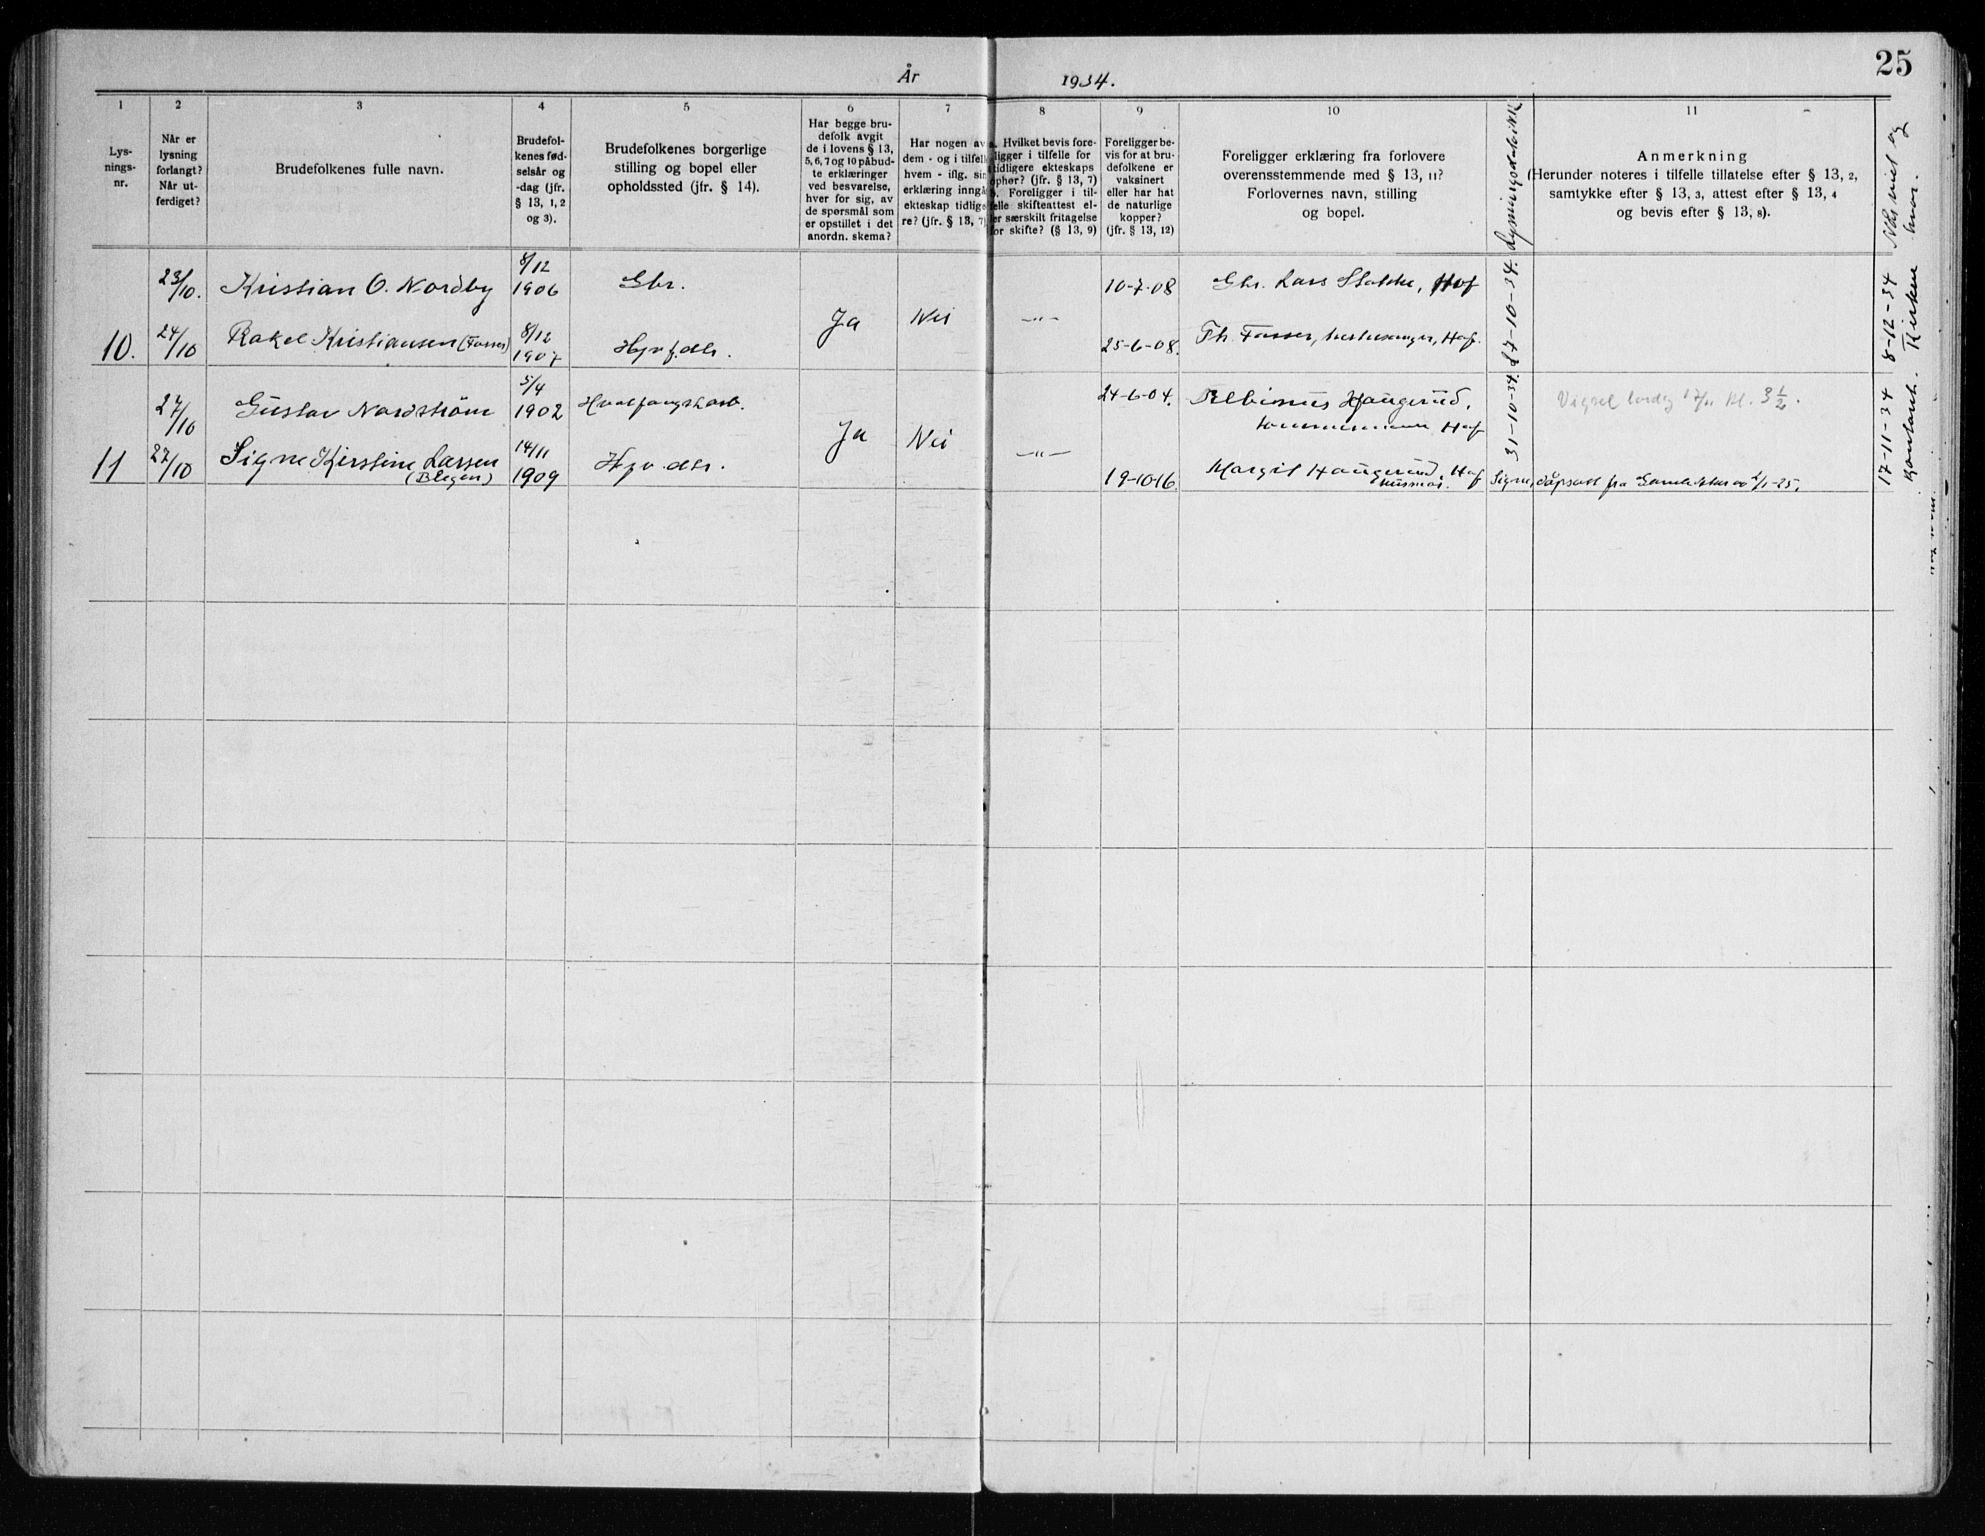 År 1934.
25
1 2 3 4 5 6 7 8 9 10 11
Lys-
nings-
nr.
Når er
lysning
forlangt?
Når ut-
ferdiget?
Brudefolkenes fulle navn.
Brudefol-
kenes fød-
selsår og
-dag (jfr.
§ 13, 1, 2
og 3).
Brudefolkenes borgerlige
stilling og bopel eller
opholdssted (jfr. § 14).
Har begge bru-
defolk avgit
de i lovens § 13,
5, 6, 7 og 10 påbud-
te erklæringer
ved besvarelse,
hver for sig, av
de spørsmål som
er opstillet i det
anordn. skema?
Har nogen av
dem - og i tilfelle
hvem - iflg. sin
erklæring inngått
ekteskap tidlige-
re? (jfr. § 13, 7)
a. Hvilket bevis fore-
ligger i tilfelle for
tidligere ekteskaps
ophør? (jfr. § 13, 7)
b. Foreligger i til-
felle skifteattest el-
ler særskilt fritagelse
for skifte? (§ 13, 9)
Foreligger be-
vis for at bru-
defolkene er
vaksinert
eller har hat
de naturlige
kopper?
(jfr. § 13, 12)
Foreligger erklæring fra forlovere
overensstemmende med § 13, 11?
Forlovernes navn, stilling
og bopel.
Anmerkning
(Herunder noteres i tilfelle tillatelse efter § 13, 2,
samtykke efter § 13, 3, attest efter § 13, 4
og bevis efter § 13, 8).
Når viet og
hvor.
23/10. Kristian O. Nordby 8/12 1906 Gbr. 10-7-08 Gbr. Lars Stokke, Hof
10. 24/10 Rakel Kristiansen (Fosser) 8/12 1907 Ja Nei -"- 25-6-08. Th. Fosser, Hof.
27-10-34.
8-12-34 Kirken
27/10 Gustav Nordstrøm 5/4 1902 Hvalfangstarb. 24-6-04. Albinus Haugerud,
Hof
Vigsel lørdag 17/11 kl. 3 ½.
11 27/10 Signe Kirstine Larsen
(Blegen) 14/11 1909 Ja Nei -"- 19-10-16. Margit Haugerud, Hof
husmor.
31-10-34.
Signe, dåpsatt fra 25.
17-11-34